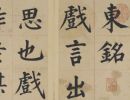 東銘
戲言出
思也戲